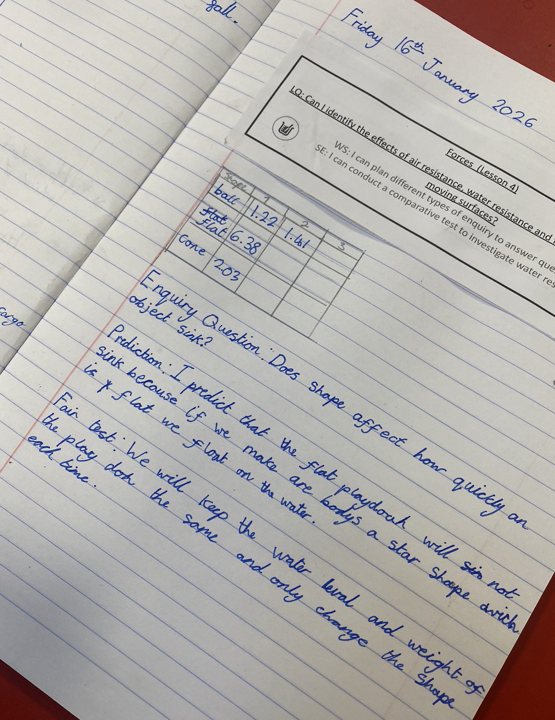 gall.
cargo
Friday 16th January 2026
Forces (Lesson 4)
LQ: Can I identify the effects of air resistance, water resistance and
moving surfaces?
WS: I can plan different types of enquiry to answer que
SE: I can conduct a comparative test to investigate water res
Shape 1 2 3
ball 1.22 1.41
Flat
Flat 6.38
Cone 203
Enquiry Question: Does shape affect how quickly an
object sink?
Prediction: I predict that the flat playdouh will not
sink because if we make are bodys a star shape
is flat we float on the water.
Fair test: We will keep the water leval and weight of
the play doh the same and only change the shape
each time.